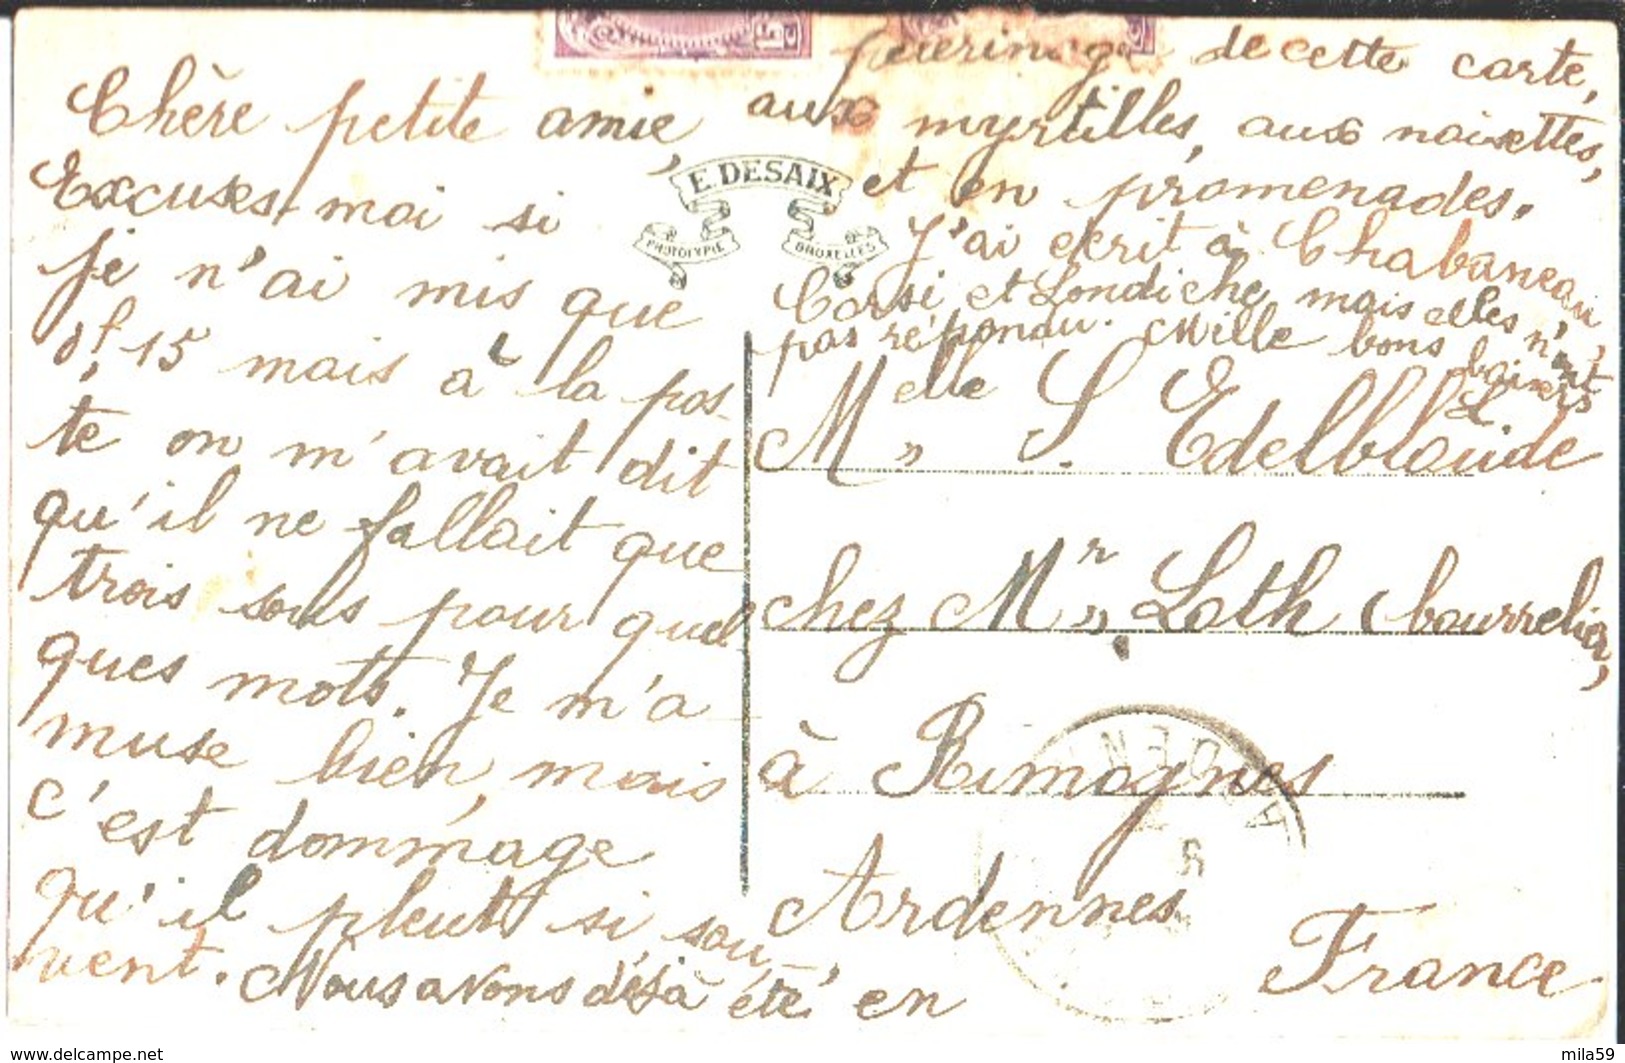 Chère petite amie,
Excuses-moi si
je n'ai mis que
0f,15 mais à la pos-
te on m'avait dit
qu'il ne fallait que
trois sous pour quel
ques mots. Je m'a
muse bien, mais
c'est dommage
qu'il pleut si sou-
vent. Nous avons déjà été en
pèlerinage de cette carte,
aux myrtilles, aux noisettes,
et en promenades.
J'ai écrit à Chabaneau,
Corsi et Londiche, mais elles n'ont
pas répondu. Mille bons baisers
E. DESAIX
PHOTOTYPIE BRUXELLES
Melle S. Edelbloude
chez Mr Loth (bourrelier,
à Rimognes
Ardennes
France
ARDENN
5
15
www.delcampe.net
mila59